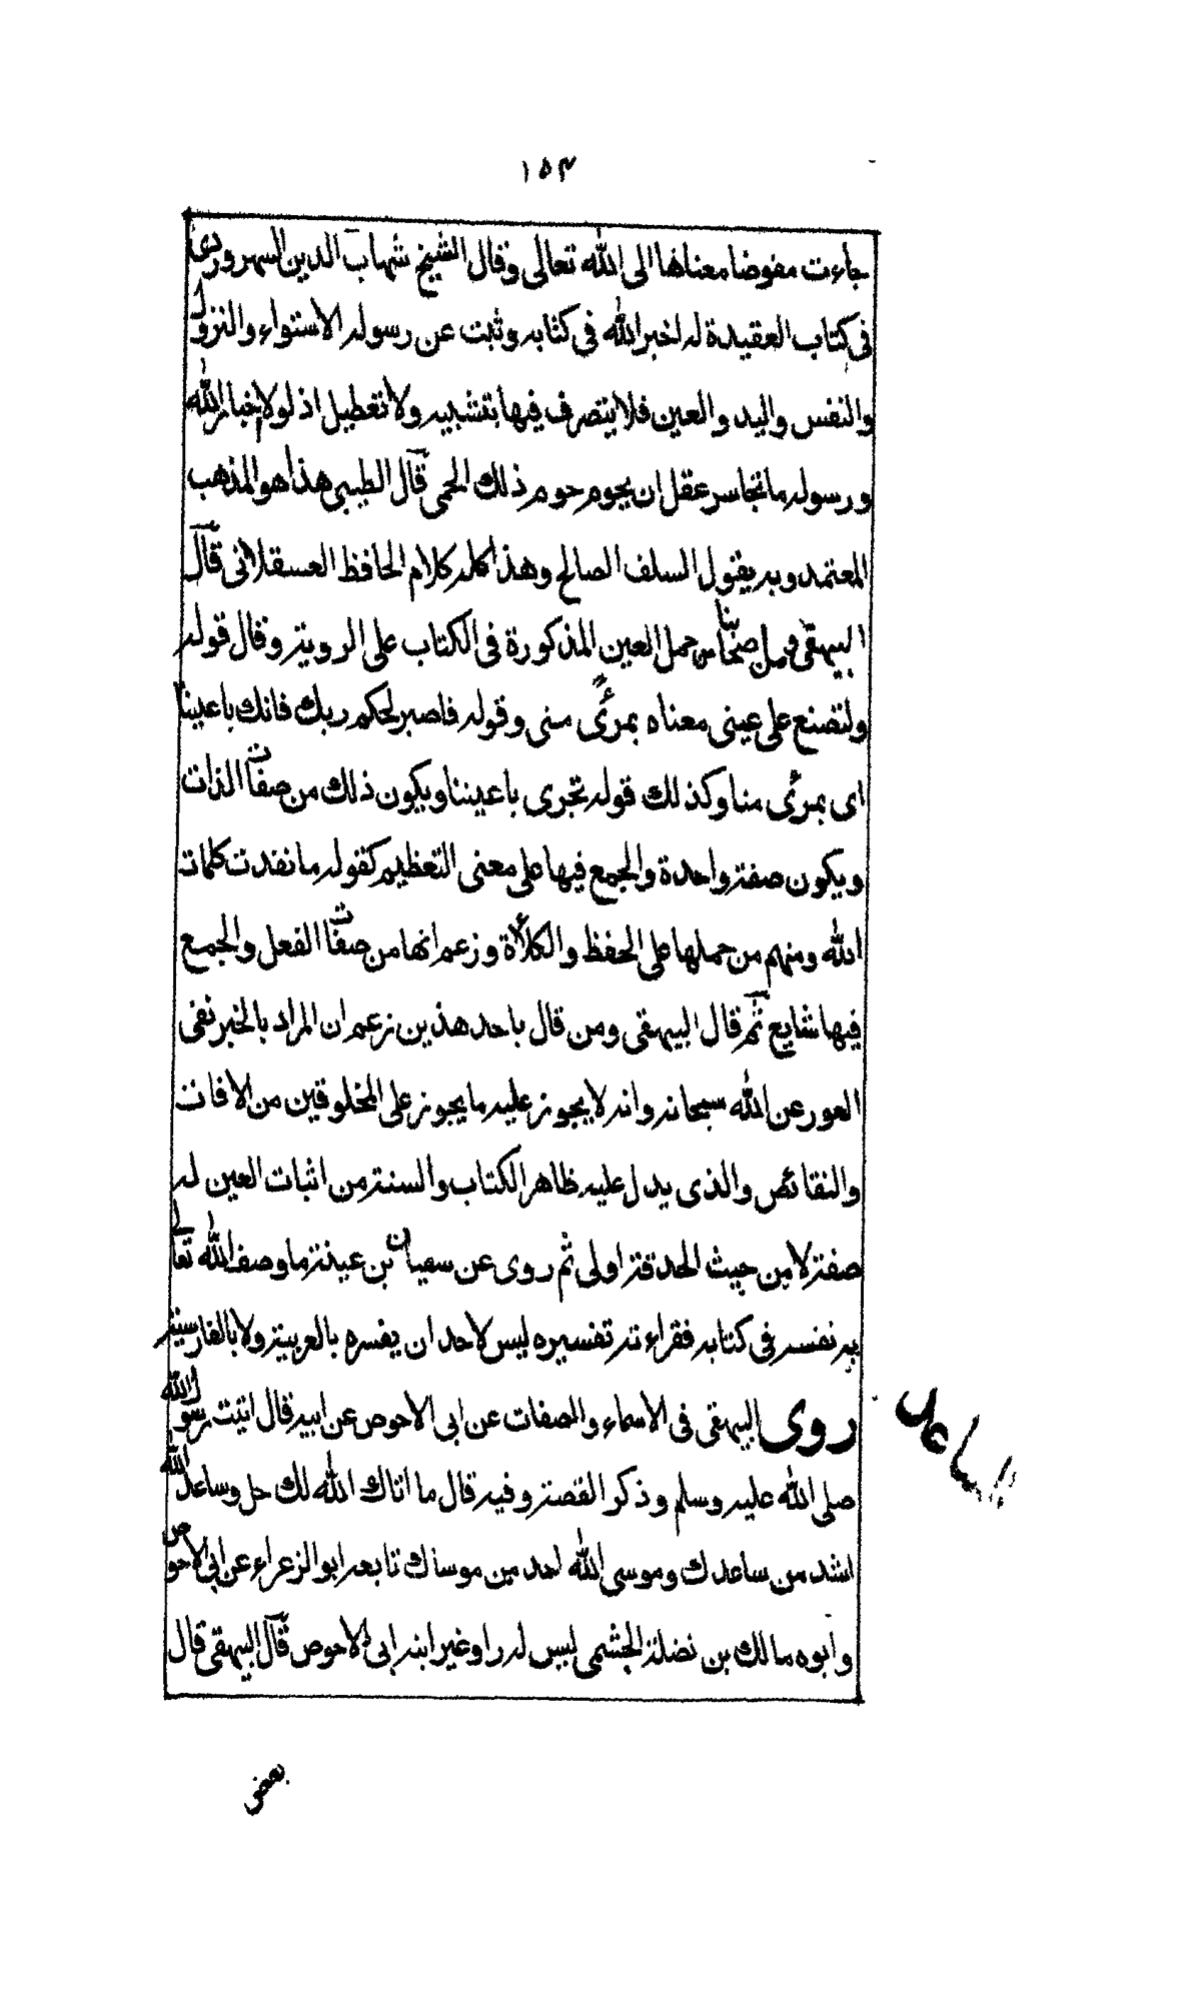 ١٥٣
جاءت مفوضا معناها الى الله تعالى وقال الشيخ شهاب الدين السهروردى
فى كتاب العقيدة له اخبر الله فى كتابه وثبت عن رسوله الاستواء والنزول
والنفس واليد والعين فلا يتصرف فيها بتشبيه ولا تعطيل اذ لولا اخبار الله
ورسوله ما تجاسر عقل ان يحوم حوم ذلك الحمى قال الطيبى هذا هو المذهب
المعتمد وبه يقول السلف الصالح وهذا كله كلام الحافظ العسقلانى قال
البيهقى ومن اصحابنا من حمل العين المذكورة فى الكتاب على الروية وقال قوله
ولتصنع على عينى معناه بمرئى منى وقوله فاصبر لحكم ربك فانك باعيننا
اى بمرئى منا وكذلك قوله تجرى باعيننا ويكون ذلك من صفات الذات
ويكون صفة واحدة والجمع فيها على معنى التعظيم كقوله ما نفدت كلمات
الله ومنهم من حملها على الحفظ والكلأة وزعم انها من صفات الفعل والجمع
فيها شايع ثم قال البيهقى ومن قال باحد هذين زعم ان المراد بالخبر نفى
العور عن الله سبحانه وانه لا يجوز عليه ما يجوز على المخلوقين من الافات
والنقائص والذى يدل عليه ظاهر الكتاب والسنة من اثبات العين له
صفة لا من حيث الحدقة اولى ثم روى عن سفيان بن عيينة ما وصف الله تعالى
به نفسه فى كتابه فقراءته تفسيره ليس لاحد ان يفسره بالعربية ولا بالفارسية
روى البيهقى فى الاسماء والصفات عن ابى الاحوص عن ابيه قال اتيت رسول الله
الساعد
صلى الله عليه وسلم وذكر القصة وفيه قال ما اتاك الله لك حل وساعد الله
اشد من ساعدك وموسى الله احد من موساك تابعه ابو الزعراء عن ابى الاحوص
وابوه مالك بن نضلة الجشمى ليس له راو غير ابنه ابى الاحوص قال البيهقى قال
بعض